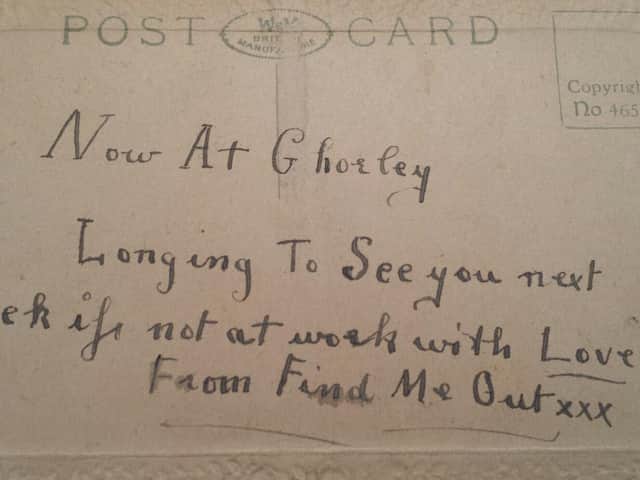 POST CARD
BRIT
MANUFA
Copyrigh
No 465
Now At Chorley
Longing To See you next
ek if not at work with Love
From Find Me Out xxx